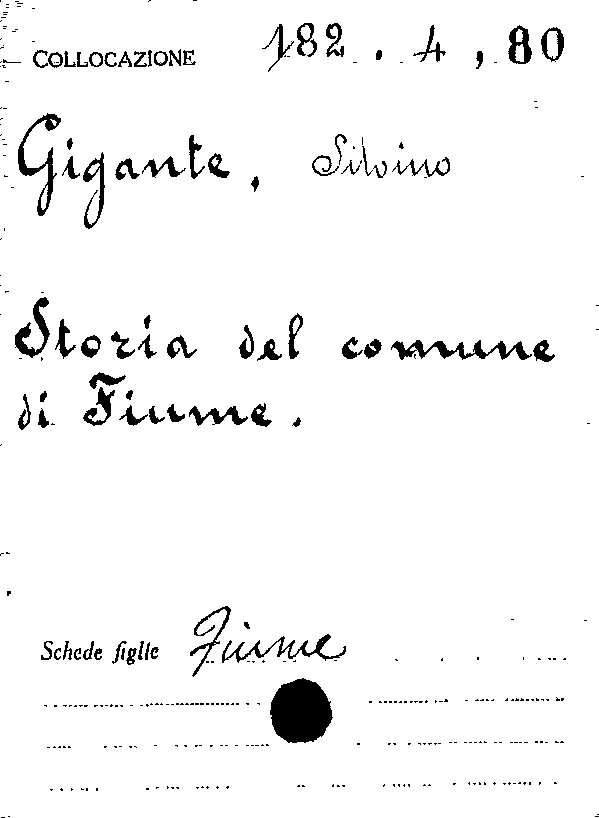 COLLOCAZIONE 182.4,80
Gigante, Silvino
Storia del comune
di Fiume.
Schede figlie Fiume